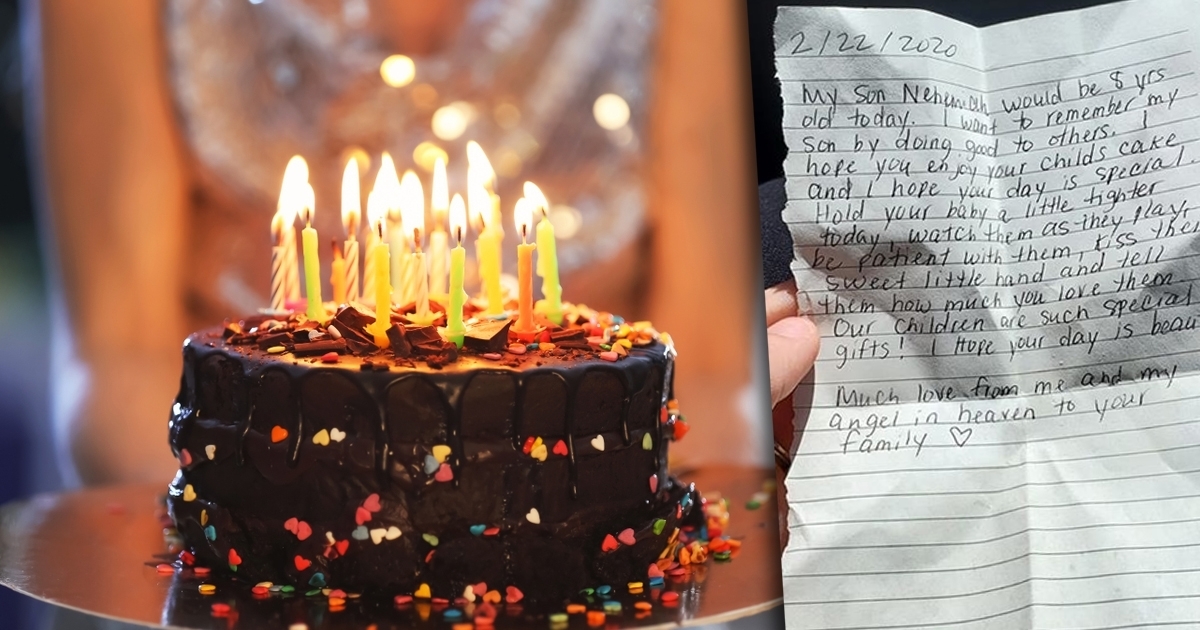 2/22/2020
My Son Nehemiah would be 8 yrs
old today. I want to remember my
son by doing good to others. I
hope you enjoy your childs cake
and I hope your day is special
Hold your baby a little tighter
today, watch them as they play,
be patient with them, kiss their
sweet little hand and tell
them how much you love them
Our Children are such special
gifts! I Hope your day is
Much love from me and my
angel in heaven to your
family ♡